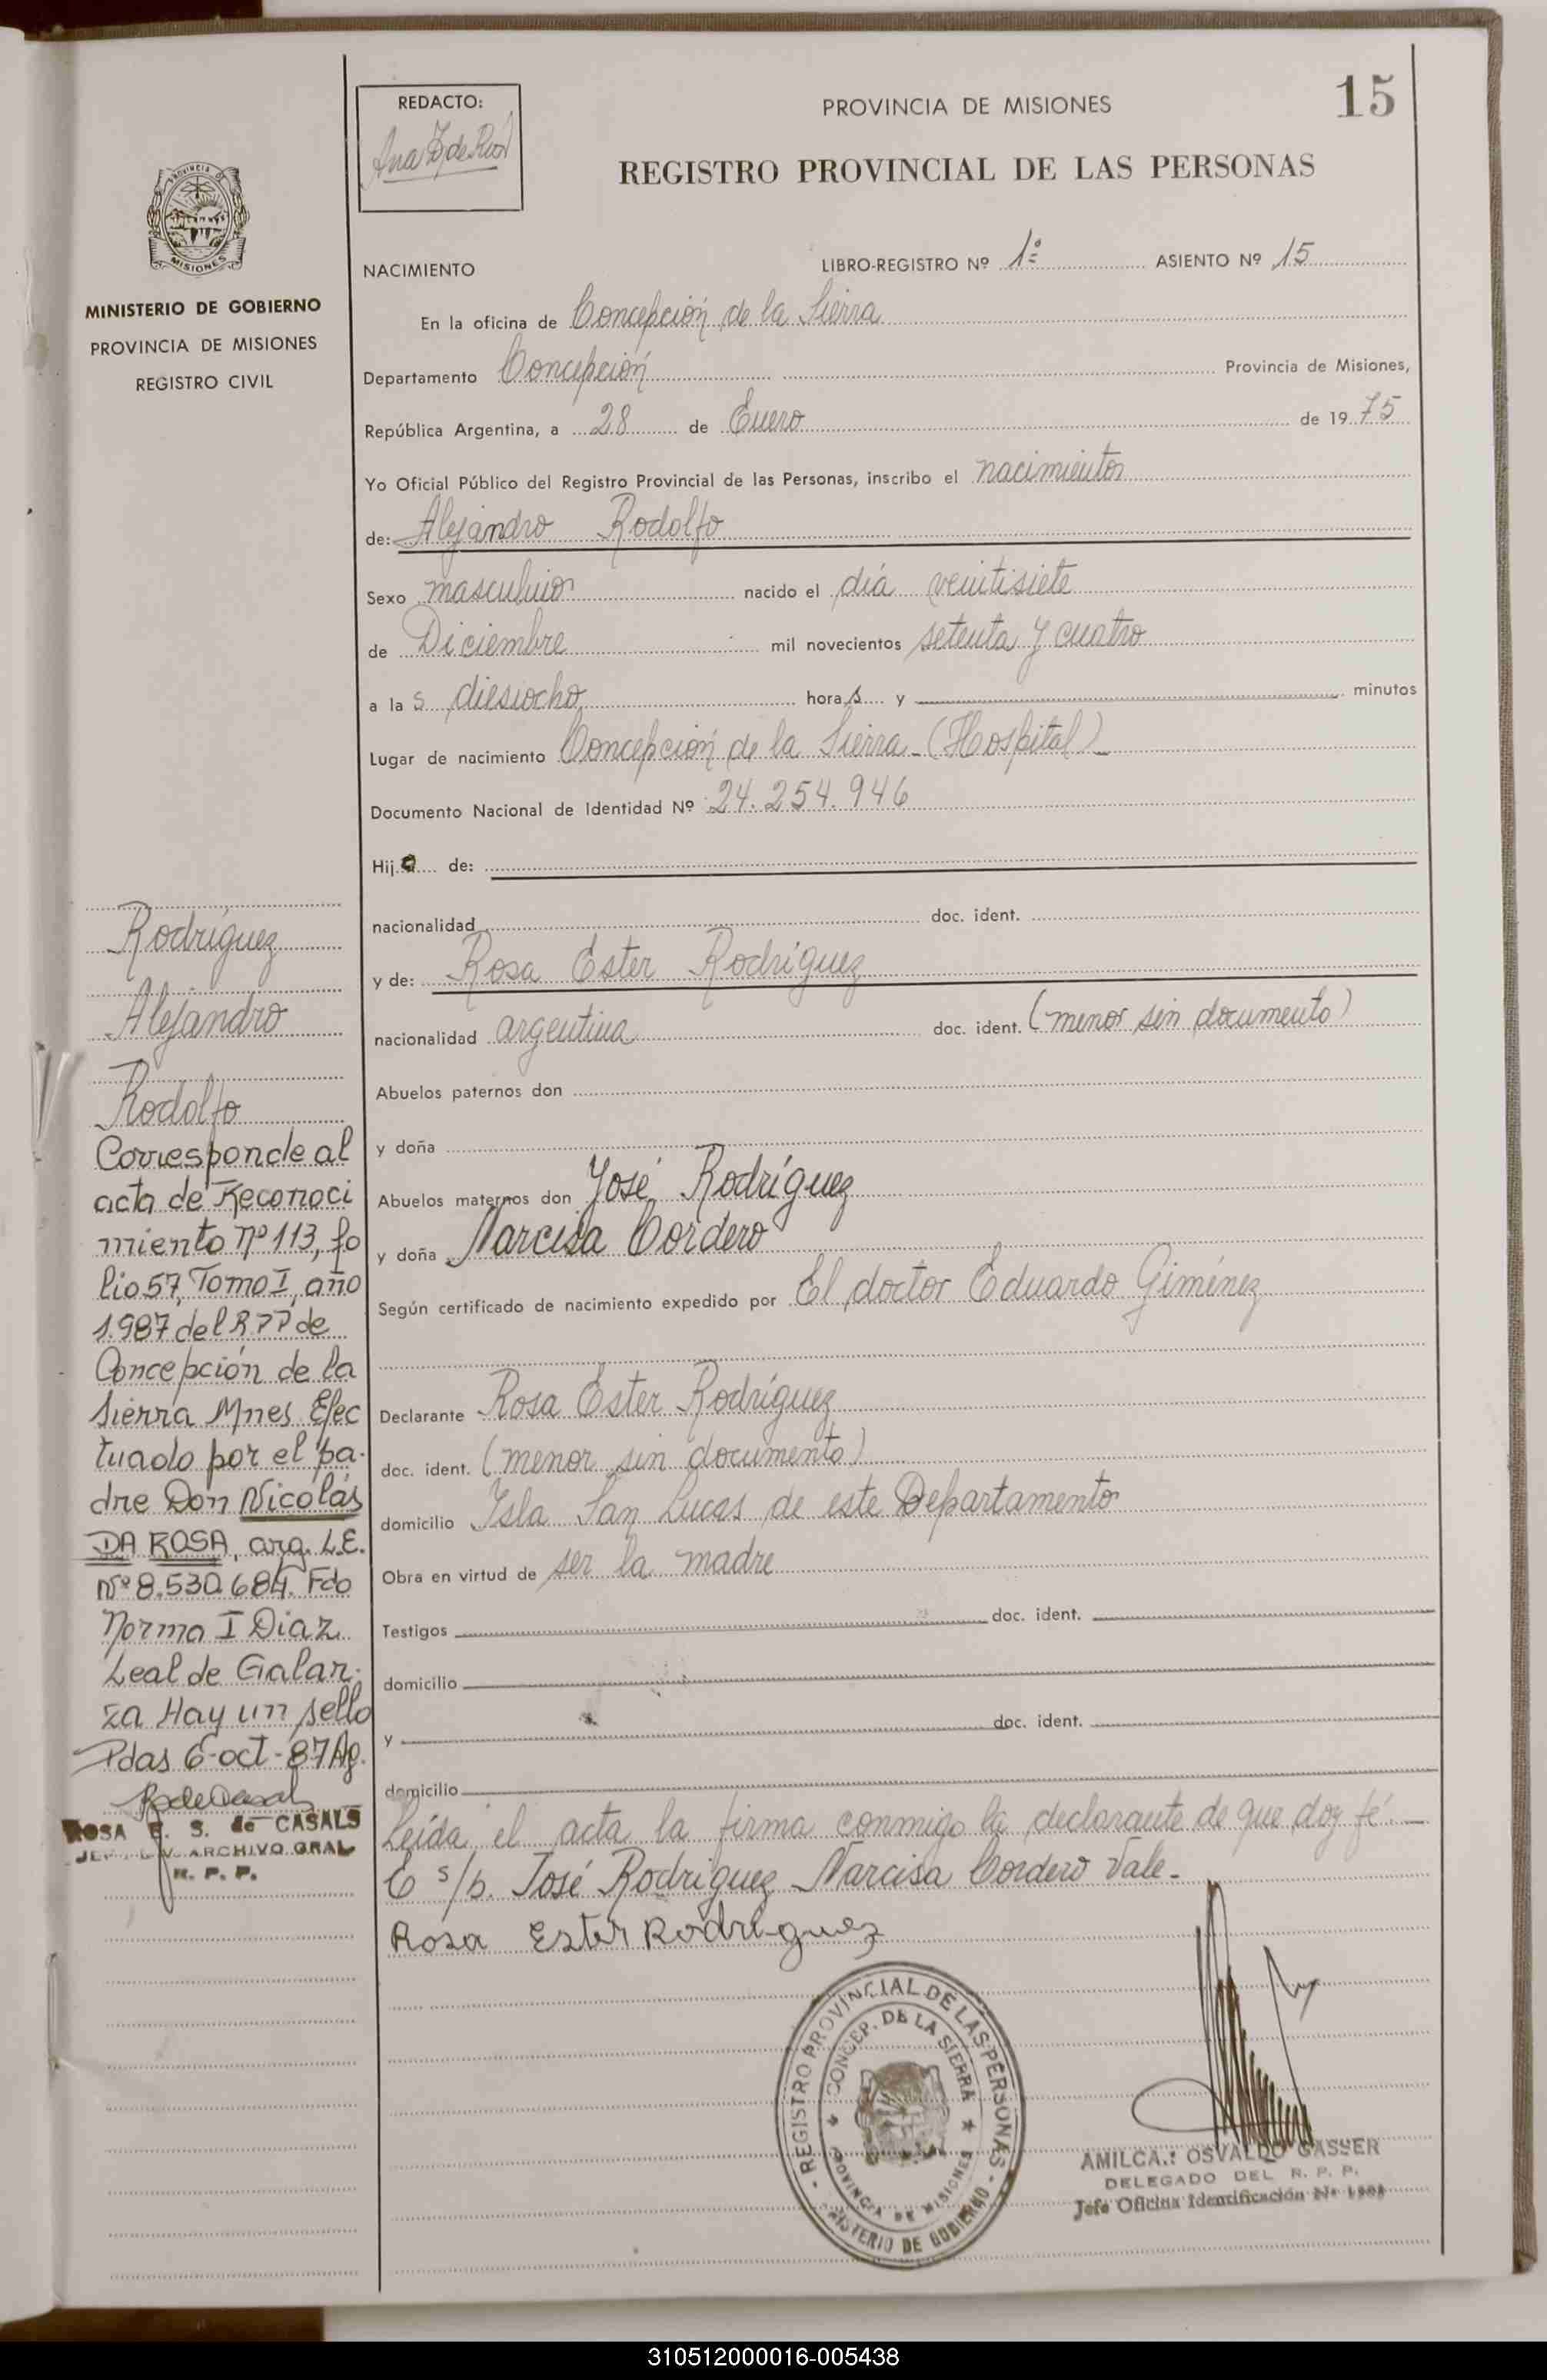 15
REDACTO:
PROVINCIA DE MISIONES
REGISTRO PROVINCIAL DE LAS PERSONAS
PROVINCIA DE
MISIONES
MINISTERIO DE GOBIERNO
PROVINCIA DE MISIONES
REGISTRO CIVIL
NACIMIENTO
LIBRO-REGISTRO Nº 1º ASIENTO Nº 15
En la oficina de Concepción de la Sierra
Departamento Concepción Provincia de Misiones,
República Argentina, a 28 de Enero de 1975
Yo Oficial Público del Registro Provincial de las Personas, inscribo el nacimiento
de: Alejandro Rodolfo
Sexo masculino nacido el día veintisiete
de Diciembre mil novecientos setenta y cuatro
a las diesiocho horas y minutos
Lugar de nacimiento Concepción de la Sierra - (Hospital)
Documento Nacional de Identidad Nº 24.254.946
Hijo de:
nacionalidad doc. ident.
y de: Rosa Ester Rodríguez
nacionalidad argentina doc. ident. (menor sin documento)
Abuelos paternos don
y doña
Abuelos maternos don José Rodríguez
y doña Narcisa Cordero
Según certificado de nacimiento expedido por El doctor Eduardo Giménez
Declarante Rosa Ester Rodríguez
doc. ident. (menor sin documento)
domicilio Isla San Lucas de este Departamento
Obra en virtud de ser la madre
Testigos doc. ident.
domicilio
y doc. ident.
domicilio
Leída el acta la firma conmigo la declarante de que doy fé.-
E s/b. José Rodríguez Narcisa Cordero Vale-
Rosa Ester Rodriguez
Rodríguez
Alejandro
Rodolfo
Corresponde al
acta de Reconoci
miento nº 113, fo
lio 57, Tomo I, año
1.987 del RPP de
Concepción de la
Sierra Mnes Efec
tuado por el pa-
dre Don Nicolás
DA ROSA, arg. L.E.
Nº 8.530.684. Fdo
Norma I Diaz
Leal de Galar-
za Hay un sello
Pdas 6-oct-87
ROSA E. S. de CASALS
ARCHIVO GRAL
R. P. P.
REGISTRO PROVINCIAL DE LAS PERSONAS
CONCEP. DE LA SIERRA
PROVINCIA DE MISIONES
MINISTERIO DE GOBIERNO
OSVALDO GASSER
DELEGADO DEL R. P. P.
Jefe Oficina Identificación Nº
310512000016-005438